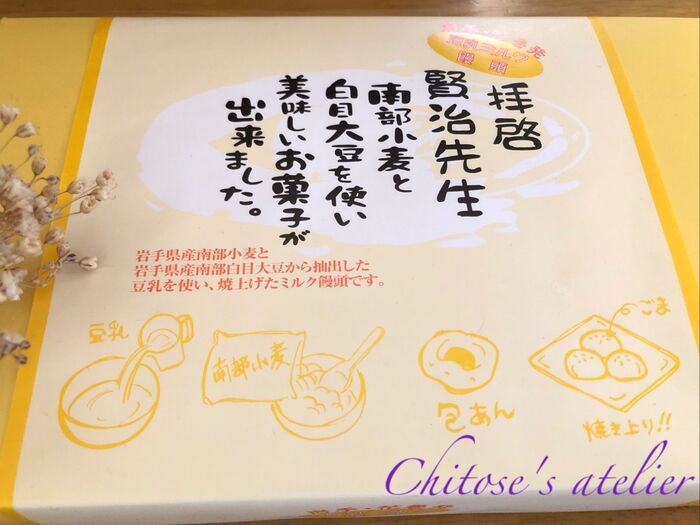 豆乳ミルク
饅頭
拝啓
賢治先生
南部小麦と
白目大豆を使い
美味しいお菓子が
出来ました。
岩手県産南部小麦と
岩手県産南部白目大豆から抽出した
豆乳を使い、焼上げたミルク饅頭です。
豆乳
南部小麦
包あん
ごま
焼き上り!!
Chitose's atelier